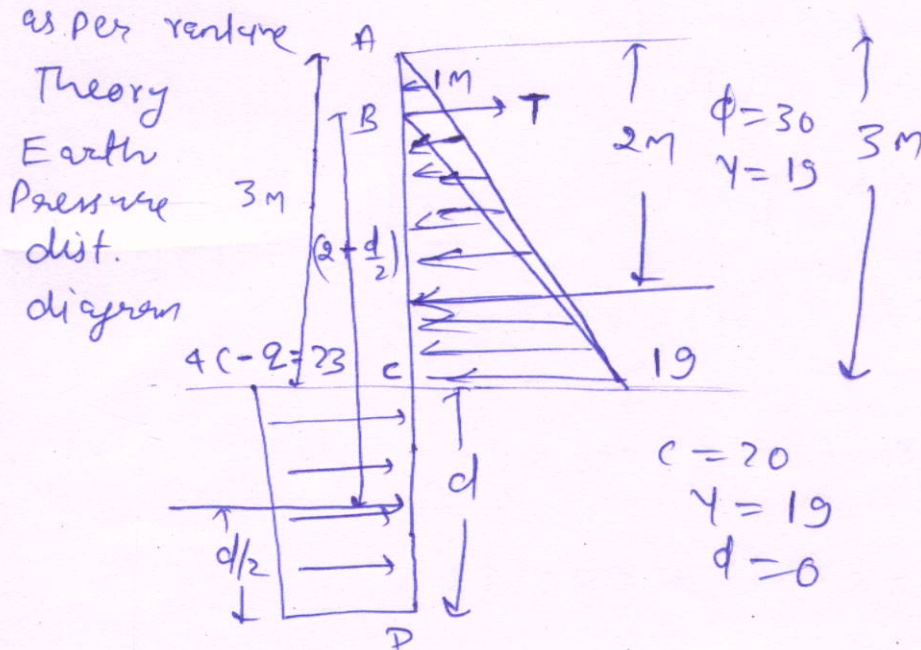 as per rankine
Theory
Earth
Pressure
dist.
diagram
A
1M
B
T
3M
2M
φ=30
γ=19
3M
(2+d/2)
4C-q=23
C
19
d
C=20
γ=19
ϕ=0
d/2
D